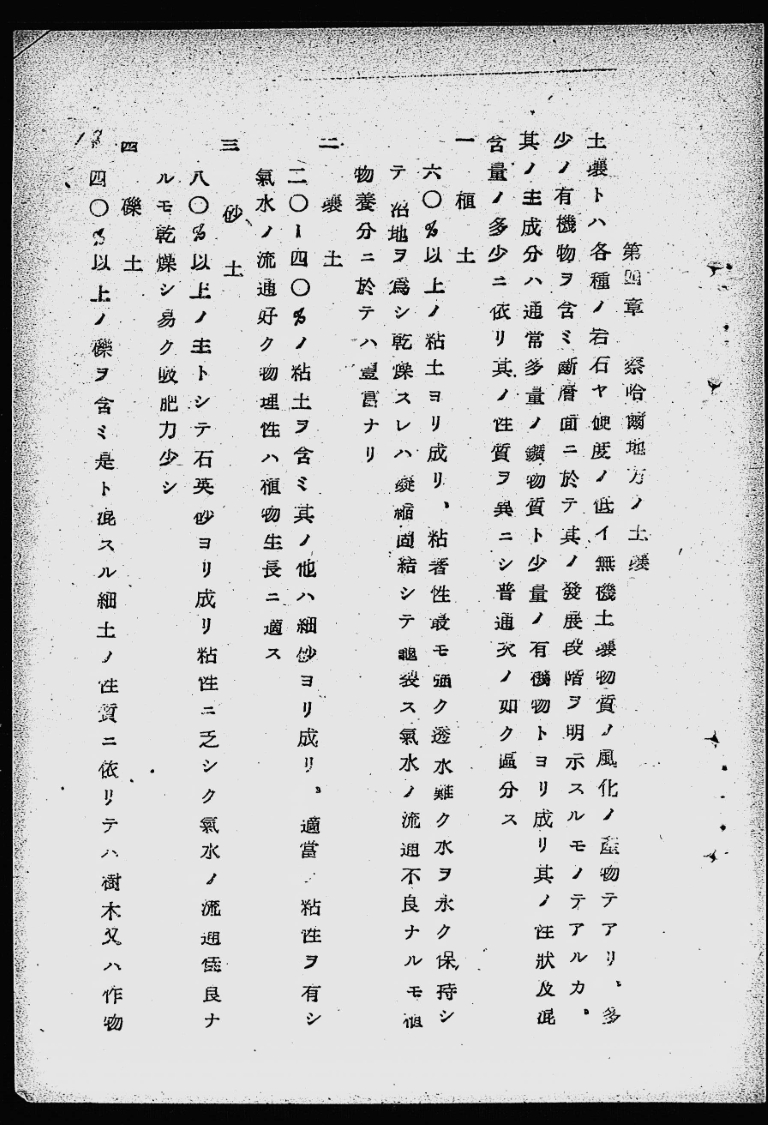 第四章　察哈爾地方ノ土壤
土壤トハ各種ノ岩石ヤ硬度ノ低イ無磯土壤物質ノ風化ノ產物テアリ、多
少ノ有機物ヲ含ミ斷層面ニ於テ其ノ發展段階ヲ明示スルモノテアルカ、
其ノ主成分ハ通常多量ノ鑛物質ト少量ノ有機物トヨリ成リ其ノ性狀及混
含量ノ多少ニ依リ其ノ性質ヲ異ニシ普通次ノ如ク區分ス
一　埴土
六〇％以上ノ粘土ヨリ成リ、粘著性最モ强ク透水難ク水ヲ永ク保持シ
テ沼地ヲ爲シ乾燥スレハ縮固結シテ龜裂ス氣水ノ流通不良ナルモ植
物養分ニ於テハ豐富ナリ
二　壤土
二〇－四〇％ノ粘土ヲ含ミ其ノ他ハ細砂ヨリ成リ、適當ノ粘性ヲ有シ
氣水ノ流通好ク物理性ハ植物生長ニ適ス
三　砂土
八〇％以上ノ主トシテ石英砂ヨリ成リ粘性ニ乏シク氣水ノ流通良ナ
ルモ乾燥シ易ク吸肥力少シ
四　礫土
四〇％以上ノ礫ヲ含ミ是ト混スル細土ノ性質ニ依リテハ樹木又ハ作物